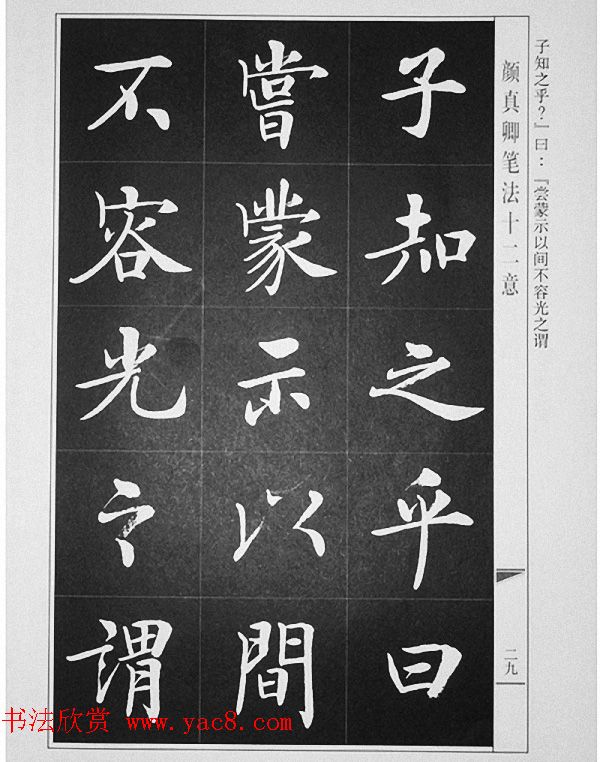 子知之乎？』曰：『尝蒙示以间不容光之谓
颜真卿笔法十二意
子知之乎曰
嘗蒙示以間
不容光之謂
二九
书法欣赏 www.yac8.com